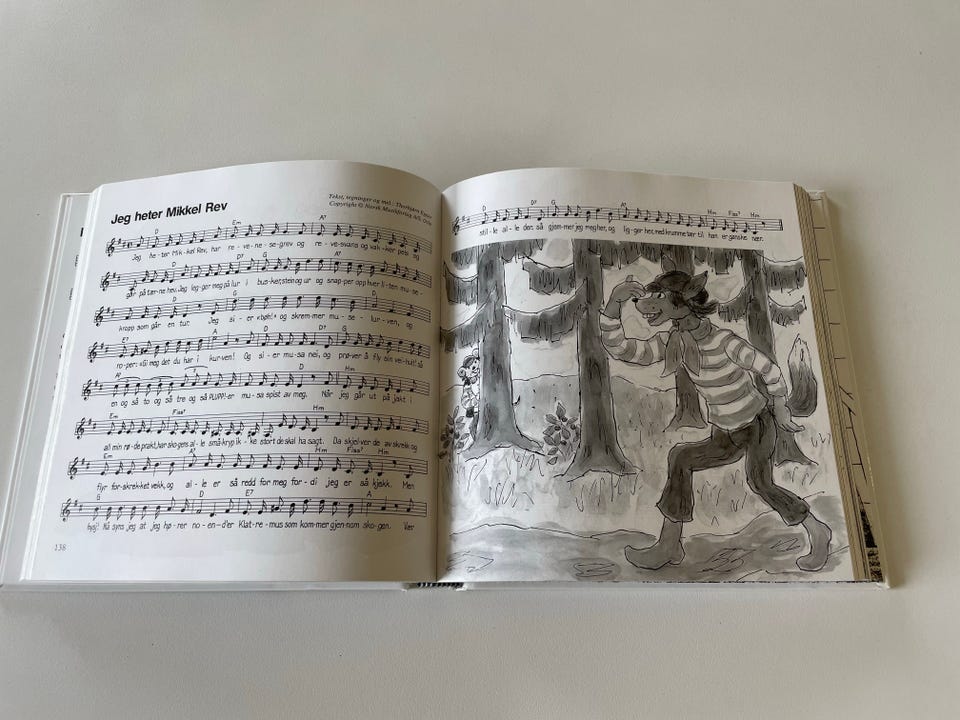 Jeg heter Mikkel Rev
Tekst, tegninger og mel.: Thorbjørn Egner
Copyright © Norsk Musikforlag A/S, Oslo
D Em A⁷
Jeg he-ter Mik-kel Rev, har re-ve-ne-se-grev og re-ve-svans og vak-ker pels og
D A⁷ D D⁷ G
går på tær-ne hev. Jeg leg-ger meg på lur i bus-ker, stein og ur og snap-per opp hver li-ten mu-se-
D G
kropp som går en tur. Jeg si-er «bøh!» og skrem-mer mu-se-lur-ven, og
E⁷ A D D⁷ G
ro-per: «Si meg det du har i kur-ven! Og si-er mu-sa nei, og prø-ver å fly sin vei-hutt! så
A⁷ D Hm
en og så to og så tre og så PLUPP!-er mu-sa spist av meg. Når jeg går ut på jakt i
Em Fiss⁷ Hm
all min rø-de prakt, har sko-gens al-le små-kryp ik-ke stort de skal ha sagt. Da skjel-ver de av skrekk og
Em A⁷ Hm Fiss⁷ Hm
flyr for-skrek-ket vekk, og al-le er så redd for meg for-di jeg er så kjekk. Men
G D E⁷ A
hysj! Nå syns jeg at jeg hø-rer no-en-d'er Klat-re-mus som kom-mer gjen-nom sko-gen. Vær
138
D D⁷ G A⁷ Hm Fiss⁷ Hm
stil-le al-le der, så gjem-mer jeg meg her, og lig-ger her, med krumme tær til han er ganske nær.